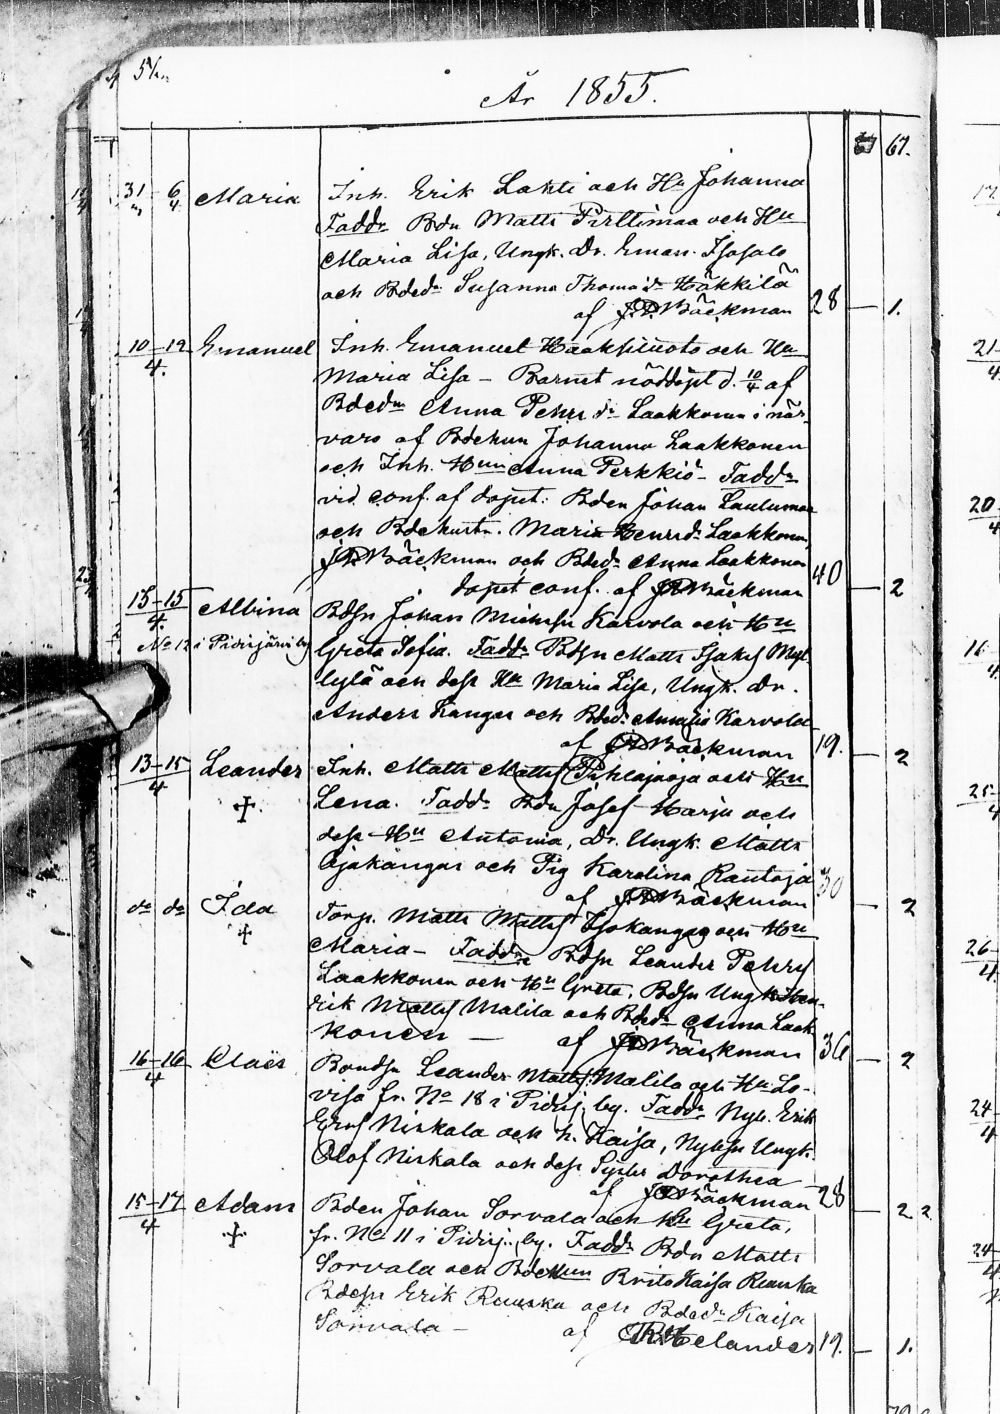 År 1855.
67.
31 – 6 Maria Inh. Erik Lahti och Hu Johanna
4 Faddr Bdn Matts Pirttimaa och Hu
Maria Lisa, Ungk. Dr. Eman. Isosalo
och Bdedr Susanna Thomædr Häkkilä
af J.D. Bäckman 28 – 1.
10–12 Emanuel Inh. Emanuel Haaksiluoto och Hu
4. Maria Lisa – Barnet nöddöpt d. 10/4 af
Bdedn Anna Pehrs dr Laakkonen i när-
varo af Bdehun Johanna Laakkonen
och Inh. Hun Anna Perkkiö – Faddr
vid conf. af dopet: Bden Johan Lauluma
och Bdehustr. Maria Henrsdr Laakkonen,
JD Bäckman och Bdedr Anna Laakkonen
dopet conf. af JD Bäckman 40 – 2
13–15 Albina Bdsn Johan Michelss Karvola och Hu
4. No 12 i Pidisjärvi by Greta Sofia. Faddr Bdsn Matts Isaks Nyl
lylä och dess Hu Maria Lisa, Ungk. Dr.
Anders Kangas och Bdedr Amalia Karvola
af JD Bäckman 19. – 2
13–15 Leander Inh. Matts Matts Tuhlajaoja och Hu
4 Lena. Faddr Bdn Josef Marju och
dess Hu Antonia, Dr. Ungk. Matts
Ojakangas och Pig Karolina Rautoja
af JD Bäckman 30 – 2
do do Ida Torp. Matts Matts Isokangas och Hu
Maria – Faddr Bdsn Leander Pehrs
Laakkonen och Hu Greta, Bdsn Ungk Hen-
rik Matts Malila och Bdedr Anna Laak
konen – af JD Bäckman 36 – 2
16–16 Claës Bondsn Leander Matts Malila och Hu Lo-
4 visa fr. No 18 i Pidisj. by. Faddr Nyb. Erik
Ers Niskala och h. Kaisa, Nybsn Ungk.
Olof Niskala och dess Syster Dorothea
af JD Bäckman 28 – 2 2
15–17 Adam Bden Johan Sorvala och Hu Greta,
4 fr. No 11 i Pidisj. by. Faddr Bdn Matts
Sorvala och Bdehun Brita Kaisa Ruuska
Bdesn Erik Ruuska och Bdedr Kaisa
Sorvala – af Helander 19. – 1.